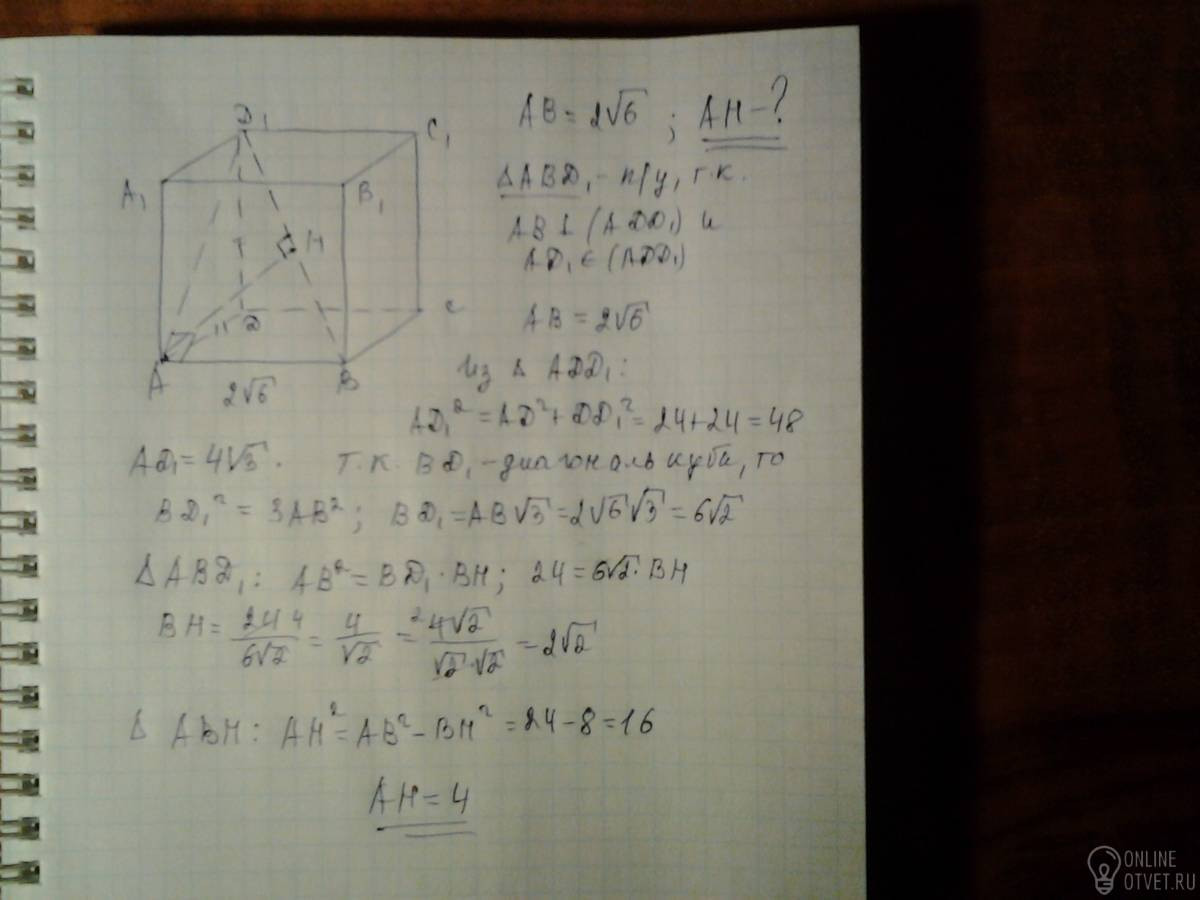 D₁
C₁
A₁
B₁
H
D
C
A
B
2√6
AB = 2√6 ; AH - ?
Δ ABD₁ - п/у, т.к.
AB ⊥ (ADD₁) и
AD₁ ∈ (ADD₁)
AB = 2√6
Из Δ ADD₁:
AD₁² = AD² + DD₁² = 24 + 24 = 48
AD₁ = 4√3. Т.к. BD₁ - диагональ куба, то
BD₁² = 3AB²; BD₁ = AB√3 = 2√6√3 = 6√2
Δ ABD₁: AB² = BD₁ · BH; 24 = 6√2 · BH
BH = 24 4 / 6√2 = 4/√2 = ² 4√2 / √2·√2 = 2√2
Δ ABH: AH² = AB² - BH² = 24 - 8 = 16
AH = 4
ONLINE
OTVET.RU